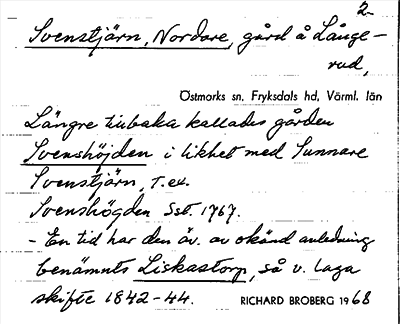 2.
Svenstjärn, Nordare, gård å Långe-
rud,
Östmarks sn. Fryksdals hd, Värml. län
Längre tillbaka kallades gården
Svenshöjden i likhet med Sunnare
Svenstjärn, t.ex.
Svenshögden Sst. 1767.
- En tid har den äv. av okänd anledning
benämnts Liskastorp, så v. laga
skifte 1842-44.
RICHARD BROBERG 1968